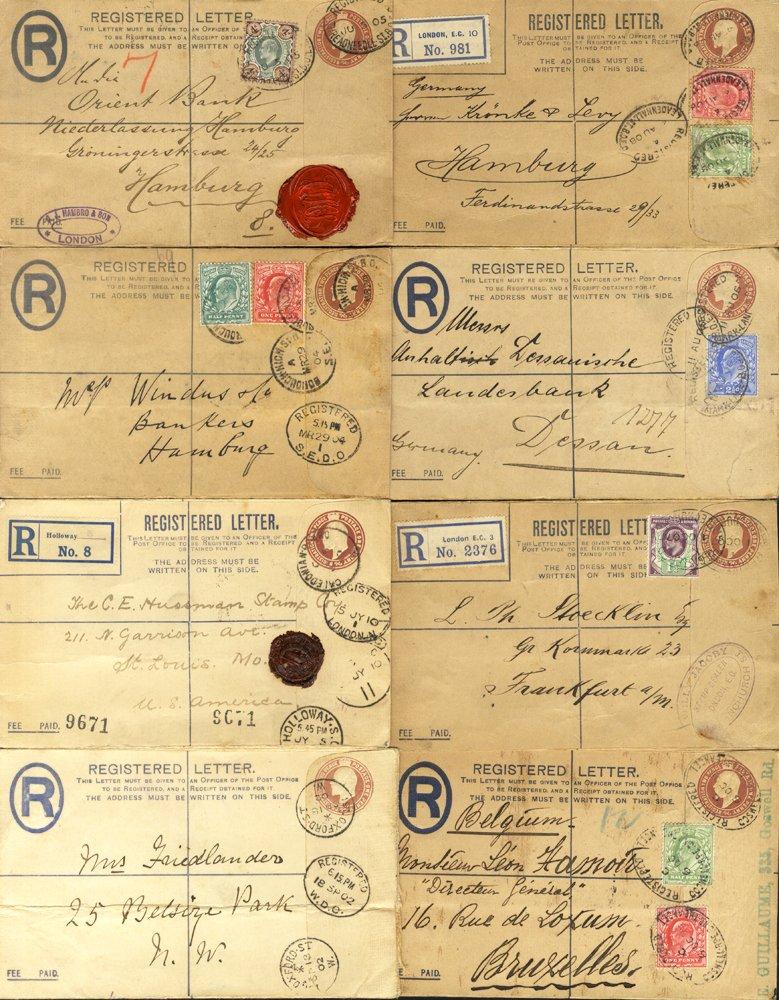 REGISTERED LETTER.
THIS LETTER MUST BE GIVEN TO AN OFFICER OF THE POST
TO BE REGISTERED, AND A
THE ADDRESS MUST BE WRITTEN ON
R
7
An die
Orient Bank
Niederlassung Hamburg
Gröningerstrasse 24/25
Hamburg
8.
FEE PAID.
HAMBRO & SON
LONDON
R
LONDON, E.C. 10
No. 981
REGISTERED LETTER.
THIS LETTER MUST BE GIVEN TO
POST OFFICE TO BE REGISTERED,
THE ADDRESS MUST BE
WRITTEN ON THIS SIDE.
Germany
Krönke & Levy
Hamburg
Ferdinandstrasse 29/33
FEE PAID.
REGISTERED
THIS LETTER MUST BE GIVEN TO
TO BE REGISTERED, AND
THE ADDRESS MUST BE
R
HALF PENNY
ONE PENNY
Windus & Co
Bankers
Hamburg
MR 29
04
REGISTERED
5.15 PM
MR 29 04
1
S.E.D.O
FEE PAID.
REGISTERED LETTER.
THIS LETTER MUST BE GIVEN TO AN OFFICER OF THE POST OFFICE
TO BE REGISTERED, AND A RECEIPT OBTAINED FOR IT.
THE ADDRESS MUST BE WRITTEN ON THIS SIDE.
R
Messrs
Dessauische
Landesbank
1277
Germany. Dessau.
FEE PAID.
R
Holloway
No. 8
REGISTERED LETTER.
THIS LETTER MUST BE GIVEN TO AN OFFICER OF THE
POST OFFICE TO BE REGISTERED, AND A RECEIPT
OBTAINED FOR IT.
THE ADDRESS MUST BE
WRITTEN ON THIS SIDE.
The C.E. Hussman Stamp Co
211. N. Garrison Ave.
St. Louis. Mo.
U.S. America
REGISTERED
15 JY 10
LONDON-N
HOLLOWAY
5.45 PM
FEE PAID. 9671
9671
R
London E.C. 3
No. 2376
REGISTERED LETTER.
THIS LETTER MUST BE GIVEN TO AN
POST OFFICE TO BE REGISTERED, AND A
OBTAINED FOR IT.
THE ADDRESS MUST BE
WRITTEN ON THIS SIDE.
L. Ph Stoecklin Esq
Gr Kornmarkt 23
Frankfurt a/m.
FEE PAID.
REGISTERED LETTER.
THIS LETTER MUST BE GIVEN TO AN OFFICER OF THE POST OFFICE
TO BE REGISTERED, AND A RECEIPT OBTAINED FOR IT.
THE ADDRESS MUST BE WRITTEN ON THIS SIDE.
R
Mrs Friedlander
25 Belsize Park
N. W.
OXFORD-ST
REGISTERED
6.15 PM
18 SP 02
W.D.O.
OXFORD-ST
FEE PAID.
REGISTERED LETTER.
THIS LETTER MUST BE GIVEN TO AN OFFICER OF THE POST OFFICE
TO BE REGISTERED, AND A RECEIPT OBTAINED FOR IT.
THE ADDRESS MUST BE WRITTEN ON THIS SIDE.
R
Belgium.
Monsieur Léon Hamoir
"Directeur Général"
16. Rue de Loxum.
Bruxelles.
HALF PENNY
ONE PENNY
E. GUILLAUME, 325, Goswell Rd.
PAID.